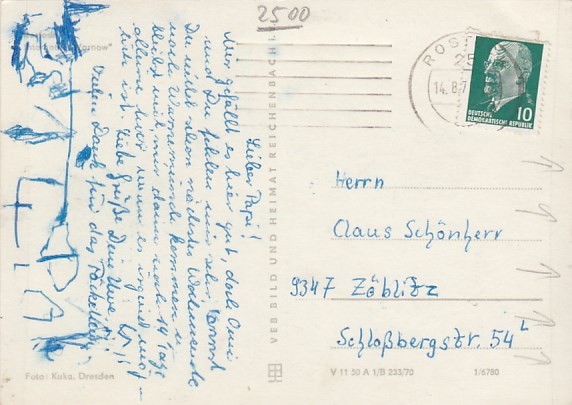 2500
Lieber Papi!
Mir gefällt es hier gut, doch Omi
und Du fehlen mir sehr. Kannst
Du nicht schon nächstes Wochenende
nach Warnemünde kommen u.
bleibst mit mir dann noch 14 Tage
allein hier wenn es irgend mög-
lich ist. Liebe Grüße Dein Uwe
Vielen Dank für das Päckchen
VEB BILD UND HEIMAT REICHENBACH
ROS
25
14.8.7
10
DEUTSCHE
DEMOKRATISCHE REPUBLIK
Herrn
Claus Schönherr
9347 Zöblitz
Schloßbergstr. 54
Foto: Kuka, Dresden
V 11 50 A 1/B 233/70
1/6780